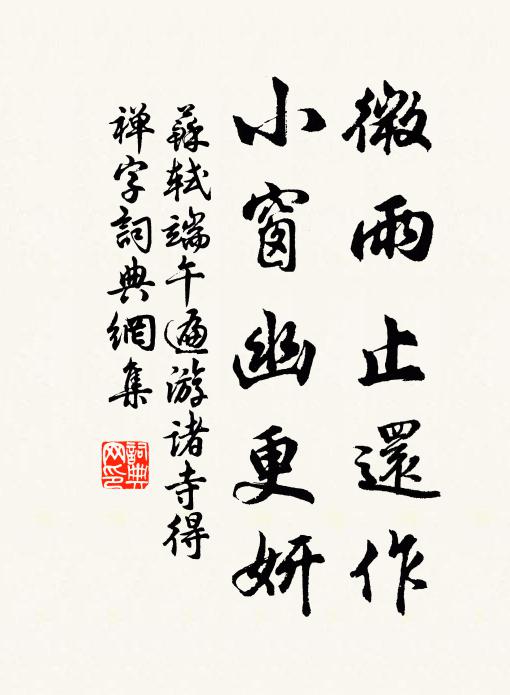 微雨止還作
小窗幽更妍
蘇軾端午遍游諸寺得
禅字詞典網集
詞典
网印